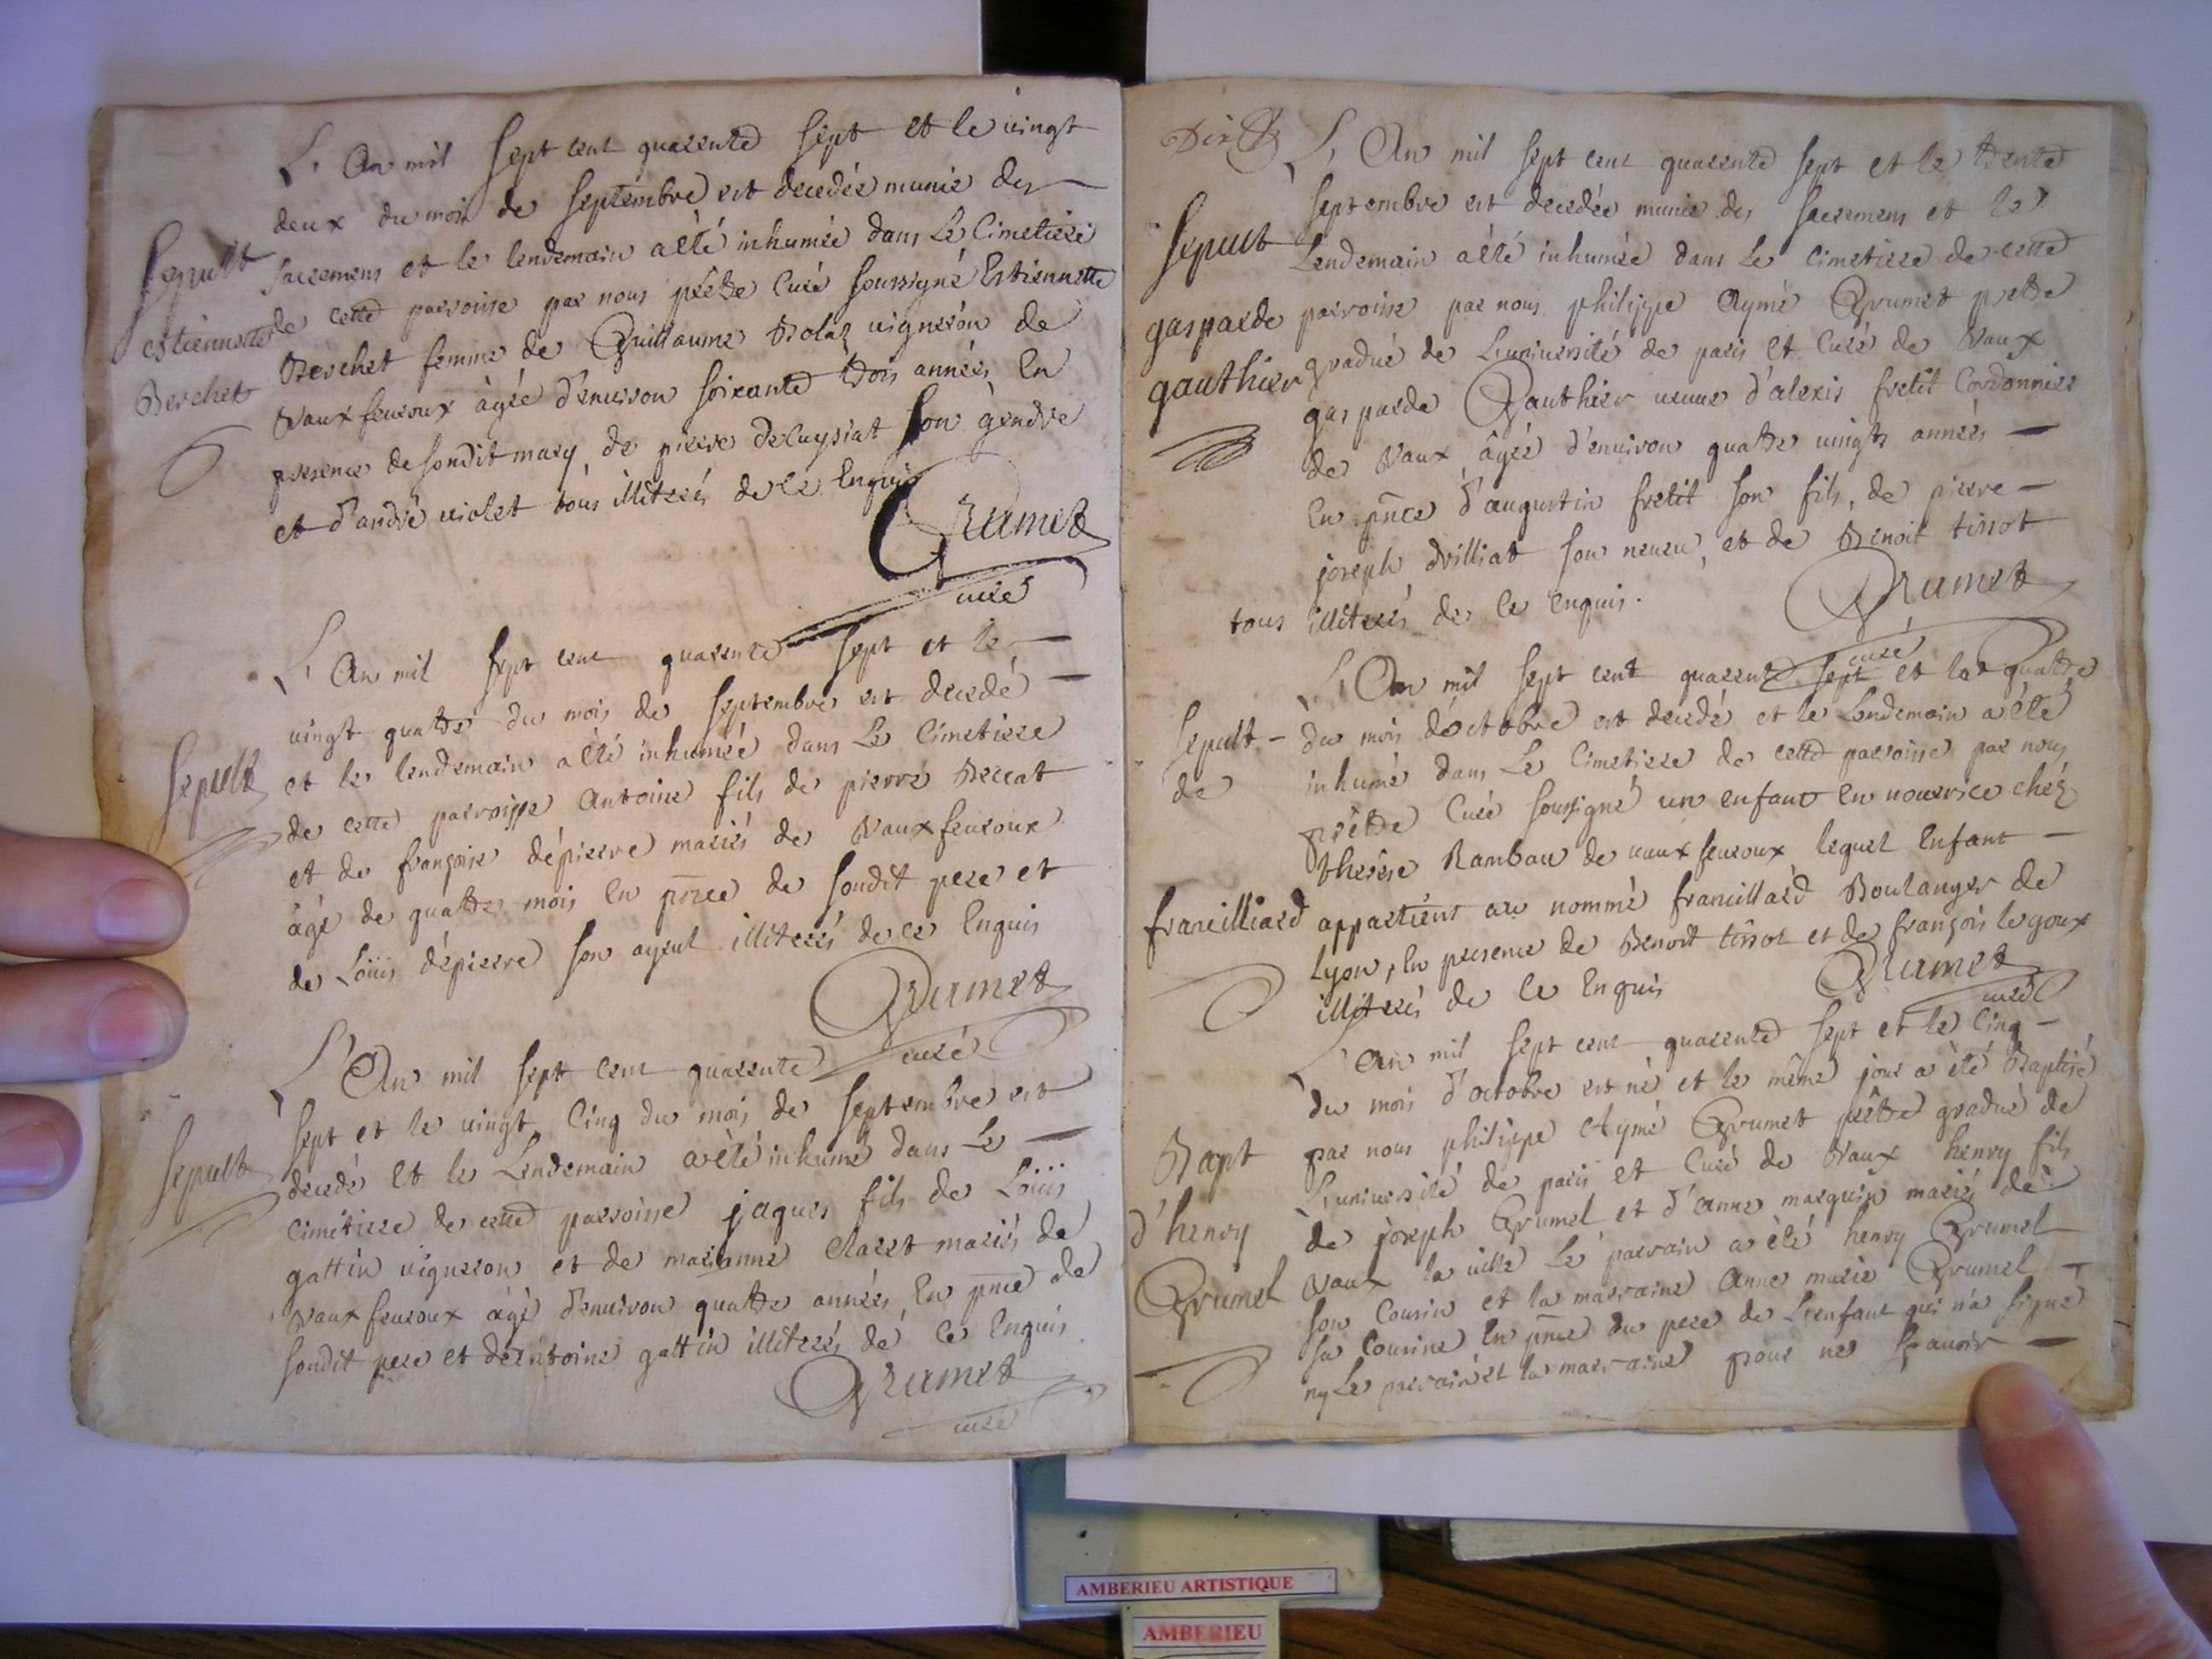 L'An mil sept cent quarente sept et le vingt
deux du mois de septembre est decedée munie des
Sepult
sacremens et le lendemain a èté inhumée dans Le Cimetiere
estiennette
de cette parroisse par nous prêtre Curé soussigné Estiennette
Berchet
Berchet femme de Guillaume Bolaz vigneron de
Vaux fevroux àgée d'environ soixante trois années, En
presence de sondit mary, de pierre decuysiat son gendre
et d'andré violet tous illiterés de ce Enquis
Grumet
curé
L'An mil sept cent quarente sept et le
vingt quattre du mois de septembre est decedé
Sepult
et le lendemain a èté inhumée dans Le Cimetiere
de cette parroisse Antoine fils de pierre Beccat
et de françoise dépierre mariés de Vaux fevroux
àgé de quattre mois En pnce de sondit pere et
de Loüis dépierre son ayeul illiterés de ce Enquis
Grumet
curé
L'An mil sept cent quarente
sept et le vingt Cinq du mois de septembre est
Sepult
decedé Et le Lendemain a èté inhumé dans Le
Cimétiere de cette parroisse jaques fils de Loüis
gattin vigneron et de marianne Claret mariés de
Vaux fevroux àgé d'environ quattre années, En pnce de
sondit pere et d'entoine gattin illiterés de ce Enquis
Grumet
curé
Dix
L'An mil sept cent quarente sept et le trente
septembre est decedée munie des sacremens et le
Sepult
Lendemain a èté inhumée dans Le Cimetiere de cette
gasparde
parroisse par nous philippe Aymé Grumet prettre
gauthier
gradué de L'université de paris Et Curé de Vaux
gasparde Gauthier veuve d'alexis fretit Cordonnier
de Vaux àgée d'environ quattre vingts années
En pnce d'augustin fretit son fils, de pierre
joseph Villiat son neveu, et de Benoit tissot
tous illiterés de ce Enquis.
Grumet
curé
L'An mil sept cent quarente sept et le quattre
Sepult
du mois d'octobre est decedé et le Lendemain a èté
de
inhumé dans Le Cimetiere de cette parroisse par nous
prêtre Curé soussigné un enfant En nourrice chéz
therése Rambau de vaux fevroux lequel Enfant
francilliard
appartient au nommé francillard Boulanger de
Lyon, En presence de Benoit tissot et de françois legoux
illiterés de ce Enquis
Grumet
curé
L'An mil sept cent quarente sept et le Cinq
du mois d'octobre est né et le même jour a èté Baptisé
Bapt
par nous philippe Aymé Grumet prêtre gradué de
L'université de paris et Curé de Vaux henry fils
d'henry
de joseph Grumel et d'anne marquin mariés de
Grumel
Vaux la ville Le parrain a èté henry Grumel
son Cousin et la marraine Anne marie Grumel
sa Cousine En pnce du pere de L'enfant qui n'a signé
ny Le parrain et la marraine pour ne sçavoir
AMBERIEU ARTISTIQUE
AMBERIEU